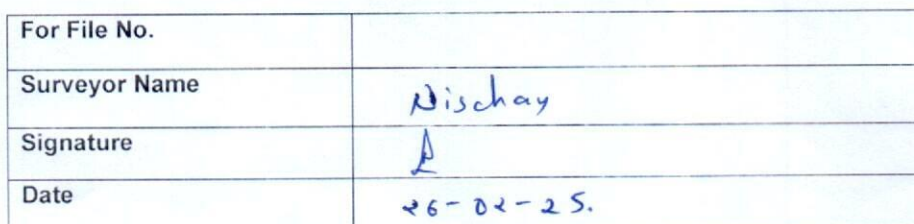 For File No.
Surveyor Name Nischay
Signature
Date 26-02-25.